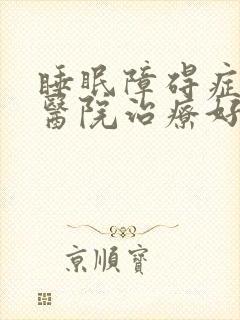 睡眠障碍症
醫院治療好
京順寶